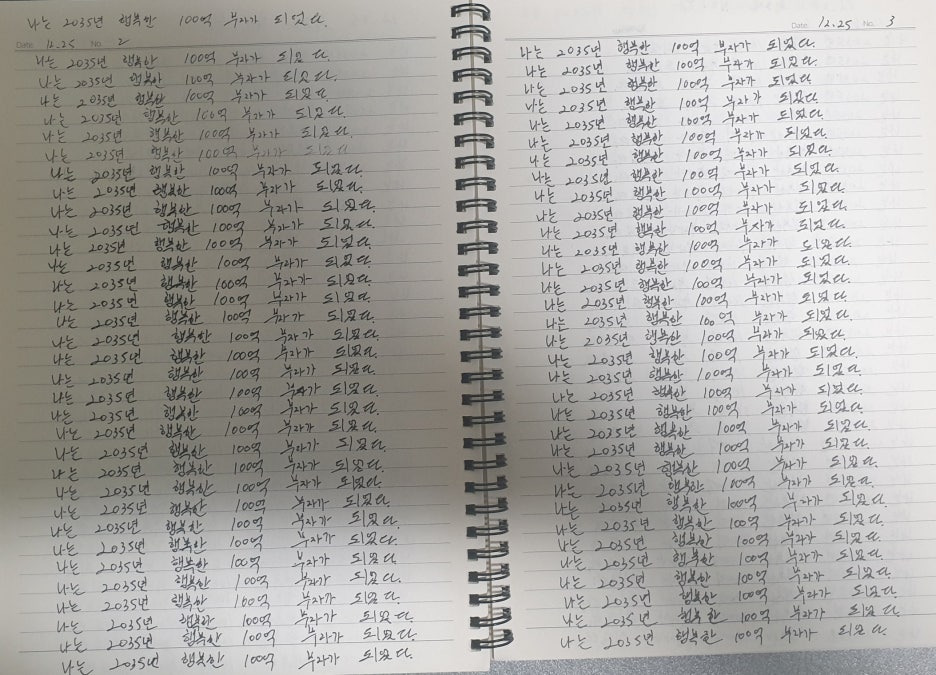 나는 2035년 행복한 100억 부자가 되었다.
Date 12.25 No. 2
나는 2035년 행복한 100억 부자가 되었다.
나는 2035년 행복한 100억 부자가 되었다.
나는 2035년 행복한 100억 부자가 되었다.
나는 2035년 행복한 100억 부자가 되었다.
나는 2035년 행복한 100억 부자가 되었다.
나는 2035년 행복한 100억 부자가 되었다.
나는 2035년 행복한 100억 부자가 되었다.
나는 2035년 행복한 100억 부자가 되었다.
나는 2035년 행복한 100억 부자가 되었다.
나는 2035년 행복한 100억 부자가 되었다.
나는 2035년 행복한 100억 부자가 되었다.
나는 2035년 행복한 100억 부자가 되었다.
나는 2035년 행복한 100억 부자가 되었다.
나는 2035년 행복한 100억 부자가 되었다.
나는 2035년 행복한 100억 부자가 되었다.
나는 2035년 행복한 100억 부자가 되었다.
나는 2035년 행복한 100억 부자가 되었다.
나는 2035년 행복한 100억 부자가 되었다.
나는 2035년 행복한 100억 부자가 되었다.
나는 2035년 행복한 100억 부자가 되었다.
나는 2035년 행복한 100억 부자가 되었다.
나는 2035년 행복한 100억 부자가 되었다.
나는 2035년 행복한 100억 부자가 되었다.
나는 2035년 행복한 100억 부자가 되었다.
나는 2035년 행복한 100억 부자가 되었다.
나는 2035년 행복한 100억 부자가 되었다.
나는 2035년 행복한 100억 부자가 되었다.
나는 2035년 행복한 100억 부자가 되었다.
나는 2035년 행복한 100억 부자가 되었다.
나는 2035년 행복한 100억 부자가 되었다.
나는 2035년 행복한 100억 부자가 되었다.
나는 2035년 행복한 100억 부자가 되었다.
나는 2035년 행복한 100억 부자가 되었다.
Date 12.25 No. 3
나는 2035년 행복한 100억 부자가 되었다.
나는 2035년 행복한 100억 부자가 되었다.
나는 2035년 행복한 100억 부자가 되었다.
나는 2035년 행복한 100억 부자가 되었다.
나는 2035년 행복한 100억 부자가 되었다.
나는 2035년 행복한 100억 부자가 되었다.
나는 2035년 행복한 100억 부자가 되었다.
나는 2035년 행복한 100억 부자가 되었다.
나는 2035년 행복한 100억 부자가 되었다.
나는 2035년 행복한 100억 부자가 되었다.
나는 2035년 행복한 100억 부자가 되었다.
나는 2035년 행복한 100억 부자가 되었다.
나는 2035년 행복한 100억 부자가 되었다.
나는 2035년 행복한 100억 부자가 되었다.
나는 2035년 행복한 100억 부자가 되었다.
나는 2035년 행복한 100억 부자가 되었다.
나는 2035년 행복한 100억 부자가 되었다.
나는 2035년 행복한 100억 부자가 되었다.
나는 2035년 행복한 100억 부자가 되었다.
나는 2035년 행복한 100억 부자가 되었다.
나는 2035년 행복한 100억 부자가 되었다.
나는 2035년 행복한 100억 부자가 되었다.
나는 2035년 행복한 100억 부자가 되었다.
나는 2035년 행복한 100억 부자가 되었다.
나는 2035년 행복한 100억 부자가 되었다.
나는 2035년 행복한 100억 부자가 되었다.
나는 2035년 행복한 100억 부자가 되었다.
나는 2035년 행복한 100억 부자가 되었다.
나는 2035년 행복한 100억 부자가 되었다.
나는 2035년 행복한 100억 부자가 되었다.
나는 2035년 행복한 100억 부자가 되었다.
나는 2035년 행복한 100억 부자가 되었다.
나는 2035년 행복한 100억 부자가 되었다.